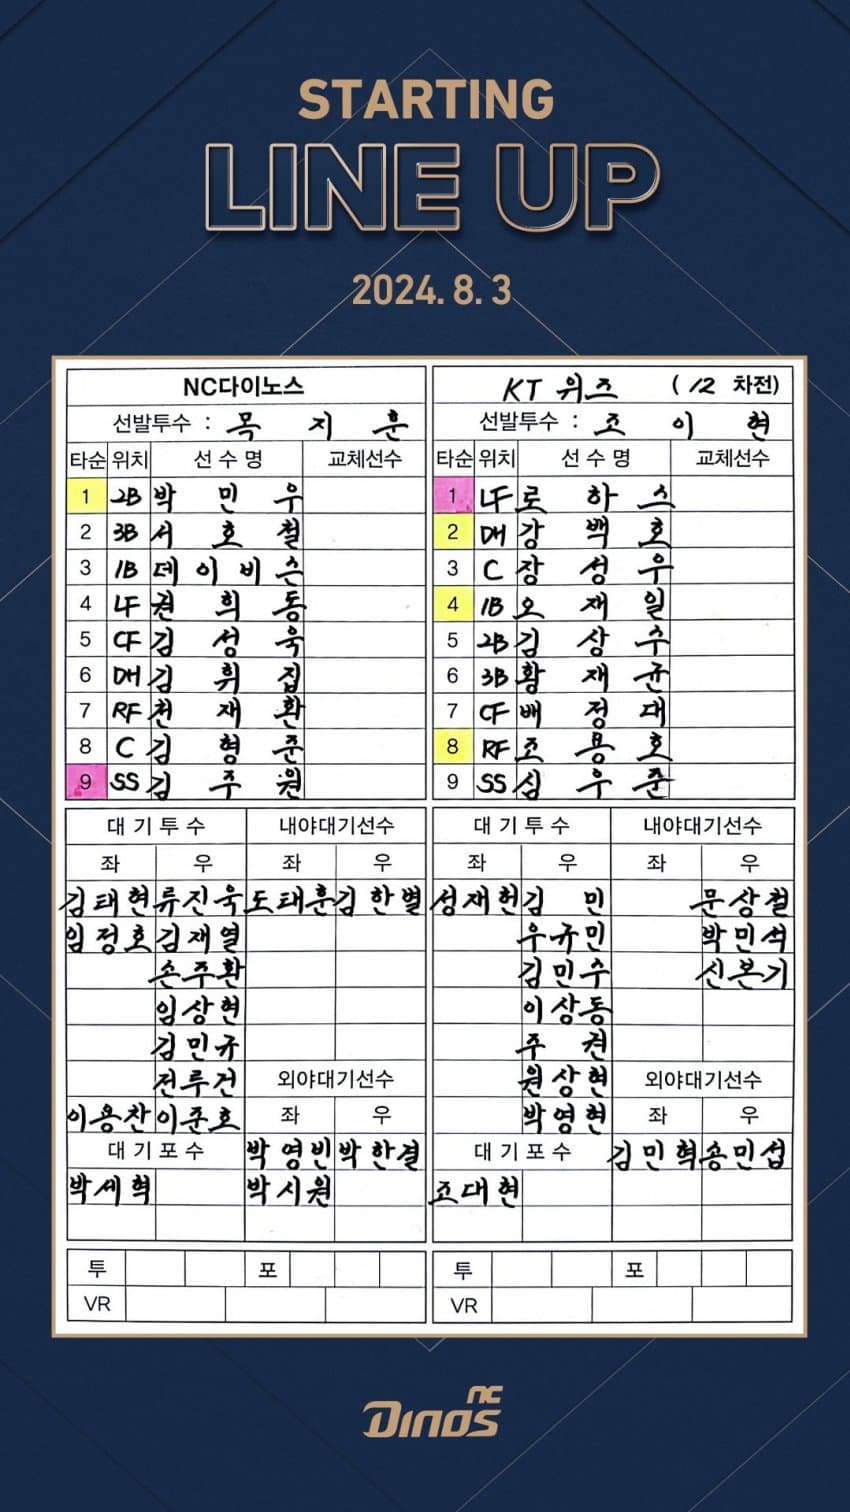 STARTING
LINE UP
2024. 8. 3
NC다이노스
선발투수 : 목 지 훈
타순 위치 선수명 교체선수
1 2B 박 민 우
2 3B 서 호 철
3 1B 데 이 비 슨
4 LF 권 희 동
5 CF 김 성 욱
6 DH 김 휘 집
7 RF 천 재 환
8 C 김 형 준
9 SS 김 주 원
대기투수 내야대기선수
좌 우 좌 우
김태현 류진욱 도태훈 김한별
임정호 김재열
손주환
임상현
김민규
전루건
외야대기선수
이용찬 이준호 좌 우
대기포수 박영빈 박한결
박세혁 박시원
투 포
VR
KT 위즈 (12 차전)
선발투수 : 조 이 현
타순 위치 선수명 교체선수
1 LF 로 하 스
2 DH 강 백 호
3 C 장 성 우
4 1B 오 재 일
5 2B 김 상 수
6 3B 황 재 균
7 CF 배 정 대
8 RF 조 용 호
9 SS 심 우 준
대기투수 내야대기선수
좌 우 좌 우
성재헌 김 민 문상철
우규민 박민석
김민수 신본기
이상동
주 권
원상현 외야대기선수
박영현 좌 우
대기포수 김민혁 송민섭
조대현
투 포
VR
NC
Dinos